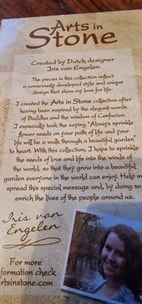 Arts in
Stone
Created by Dutch designer
Iris van Engelen
The pieces in this collection reflect
a consciously developed style and unique
design that show my love for life.
I created the Arts in Stone collection after
having been inspired by the elegant words
of Buddha and the wisdom of Confucius.
I especially took the saying "Always sprinkle
flower seeds on your path of life and your
life will be a walk through a beautiful garden"
to heart. With this collection, I hope to sprinkle
the seeds of love and life into the winds of
the world, so that they grow into a beautiful
garden everyone in the world can enjoy. Help me
spread this special message and, by doing so
enrich the lives of the people around us.
Iris van
Engelen
For more
formation check
rtsinstone.com